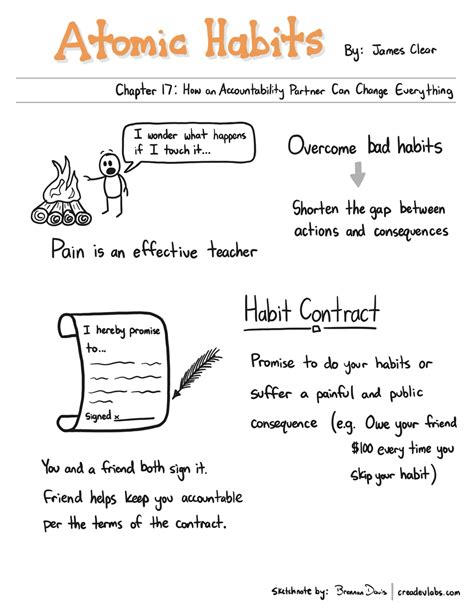 Atomic Habits
By: James Clear
Chapter 17: How an Accountability Partner Can Change Everything
I wonder what happens
if I touch it...
Pain is an effective teacher
Overcome bad habits
Shorten the gap between
actions and consequences
I hereby promise
to...
Signed x
You and a friend both sign it.
Friend helps keep you accountable
per the terms of the contract.
Habit Contract
Promise to do your habits or
suffer a painful and public
consequence (e.g. Owe your friend
$100 every time you
skip your habit)
Sketchnote by: Brennan Davis | creadevlabs.com